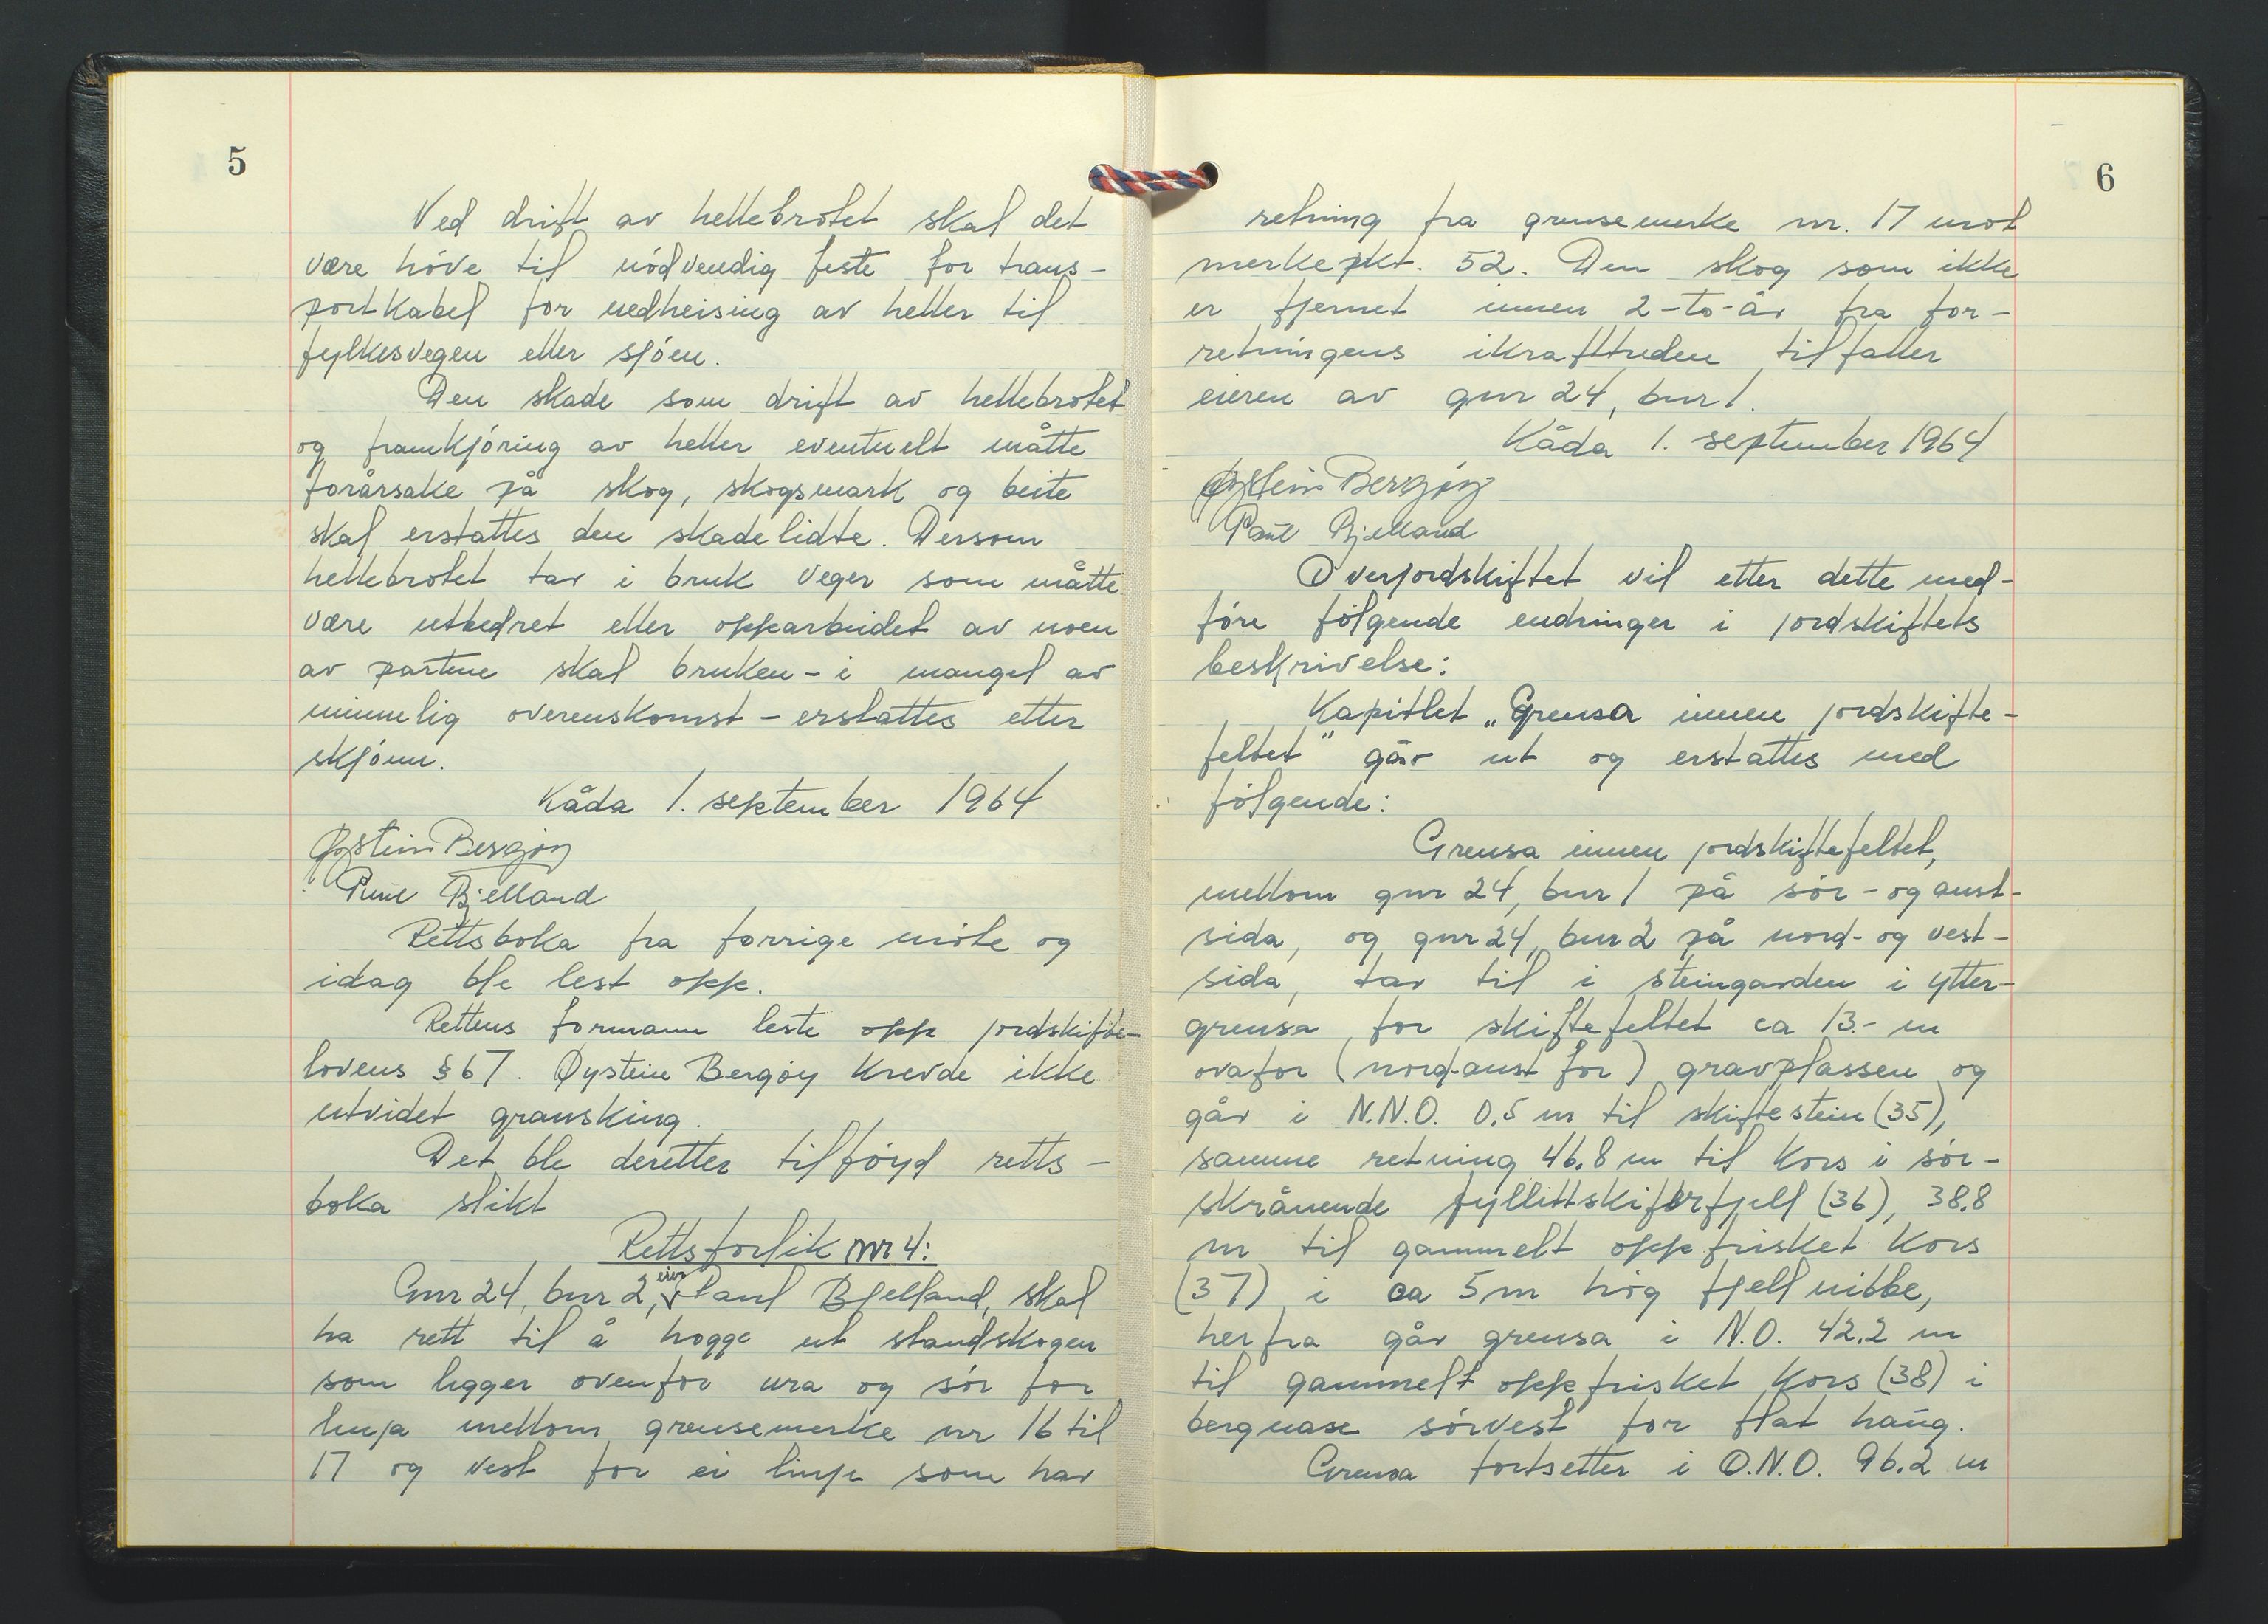 5
Ved drift av hellebrotet skal det
være höve til nödvendig feste for trans-
portkabel for nedheising av heller til
fylkesvegen eller sjöen.
Den skade som drift av hellebrotet
og framkjöring av heller eventuelt måtte
forårsake på skog, skogsmark og beite
skal erstattes den skadelidte. Dersom
hellebrotet tar i bruk veger som måtte
være utbedret eller opparbeidet av noen
av partene skal bruken - i mangel av
minnelig overenskomst - erstattes etter
skjönn.
Kåda 1. september 1964
Øystein Bergøy
Paul Bjelland
Rettsboka fra forrige möte og
idag ble lest opp.
Rettens formann leste opp jordskifte-
lovens § 67. Øystein Bergøy krevde ikke
utvidet gransking.
Det ble deretter tilföyd retts-
boka slikt
Rettsforlik nr 4:
Gnr 24, bnr 2, eier Paul Bjelland, skal
ha rett til å hogge ut standskogen
som ligger ovenfor ura og sör for
linja mellom grensemerke nr 16 til
17 og vest for ei linje som har
6
retning fra grensemerke nr. 17 mot
merkepkt. 52. Den skog som ikke
er fjernet innen 2-to-år fra for-
retningens ikrafttreden tilfaller
eieren av gnr 24, bnr 1.
Kåda 1. september 1964
Øystein Bergøy
Paul Bjelland
Overjordskiftet vil etter dette med-
före fölgende endringer i jordskiftets
beskrivelse:
Kapitlet „Grensa innen jordskifte-
feltet" går ut og erstattes med
fölgende:
Grensa innen jordskiftefeltet,
mellom gnr 24, bnr 1 på sör- og aust-
sida, og gnr 24, bnr 2 på nord- og vest-
sida, tar til i steingarden i ytter-
grensa for skiftefeltet ca 13.- m
ovafor (nord-aust for) gravplassen og
går i N.N.O. 0,5 m til skiftestein (35),
samme retning 46.8 m til kors i sör-
skrånende fyllittskiferfjell (36), 38.8
m til gammelt oppfrisket kors
(37) i ca 5m hög fjellnibbe,
herfra går grensa i N.O. 42.2 m
til gammelt oppfrisket kors (38) i
bergnase sörvest for flat haug.
Grensa fortsetter i O.N.O. 96.2 m